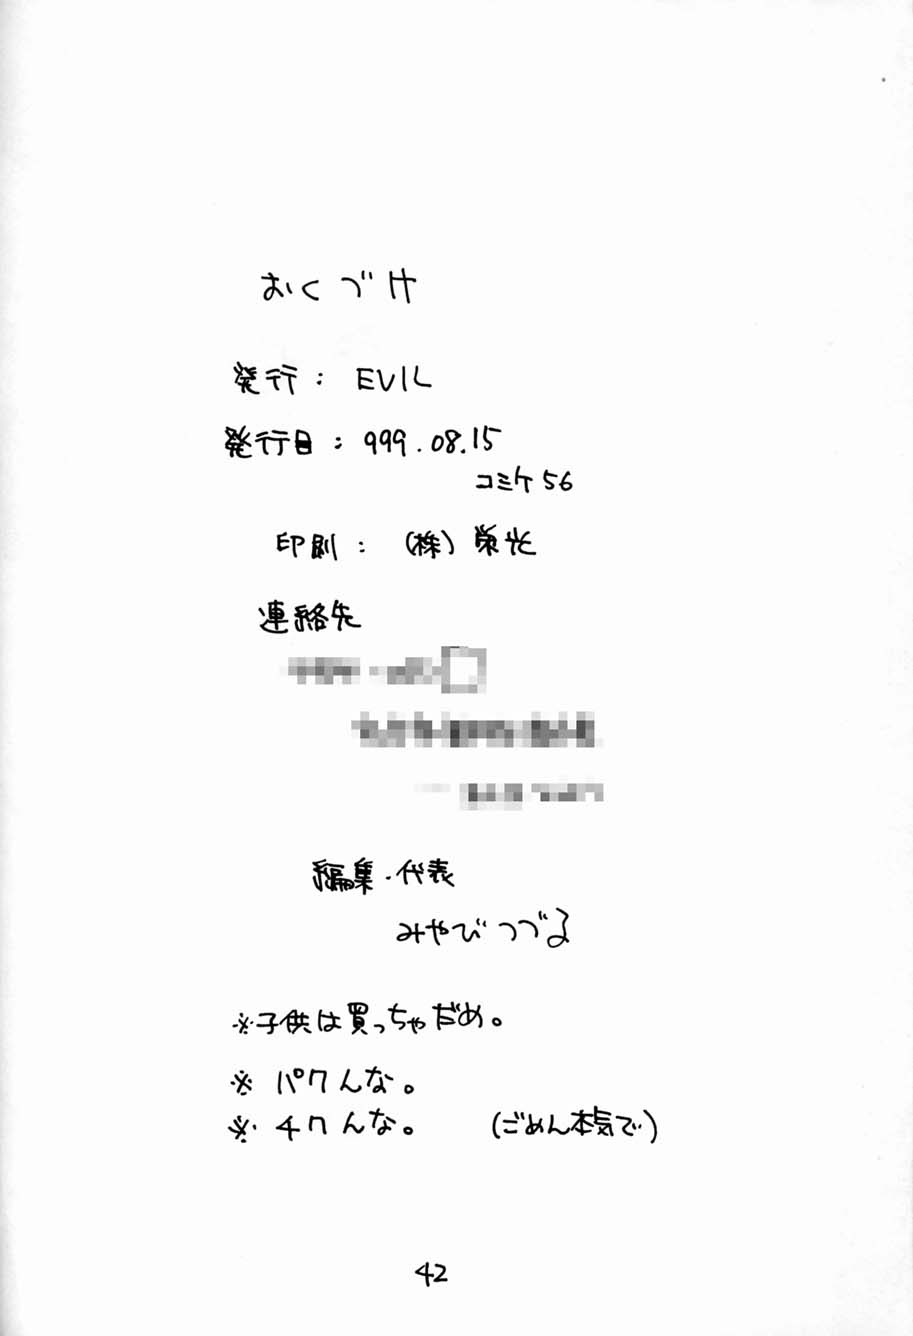 おくづけ
発行： EVIL
発行日： 999.08.15
コミケ56
印刷： (株)栄光
連絡先
編集・代表
みやびつづる
※子供は買っちゃだめ。
※パクんな。
※チクんな。 (ごめん本気で)
42